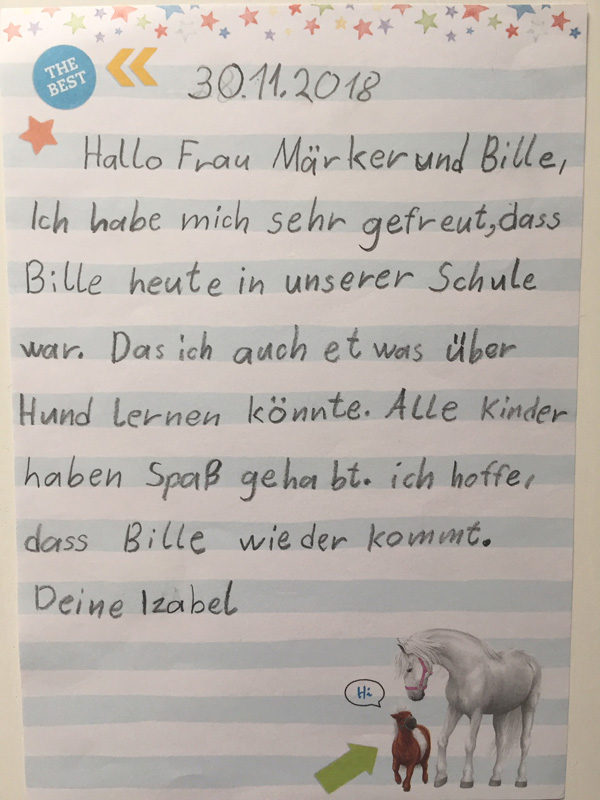 THE
BEST
30.11.2018
Hallo Frau Märker und Bille,
Ich habe mich sehr gefreut, dass
Bille heute in unserer Schule
war. Das ich auch etwas über
Hund lernen könnte. Alle Kinder
haben Spaß gehabt. ich hoffe,
dass Bille wieder kommt.
Deine Izabel
Hi